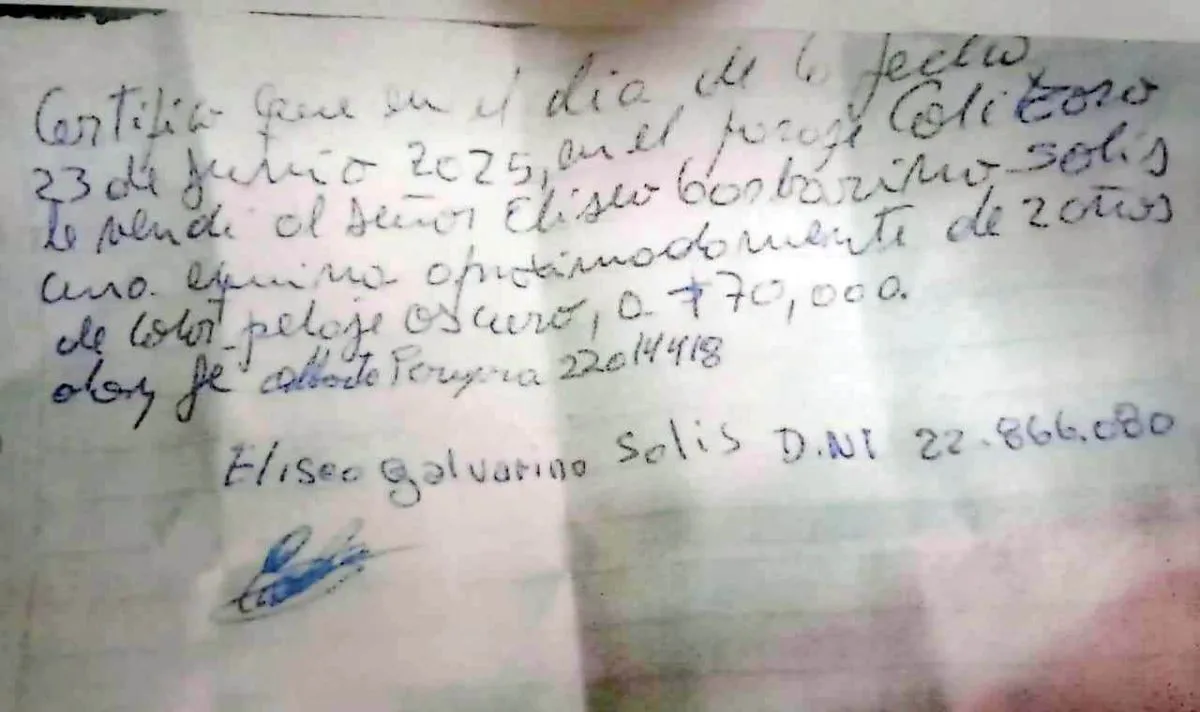 Certifico que en el dia de la fecha
23 de Junio 2025, en el paraje Colitoro
le vendi al señor Eliseo Solis
una equina aproximadamente de 2 años
de color pelaje oscuro, a $70,000.
doy fe Alberto Pereyra 22014418
Eliseo galvarino Solis D.NI 22.866.080